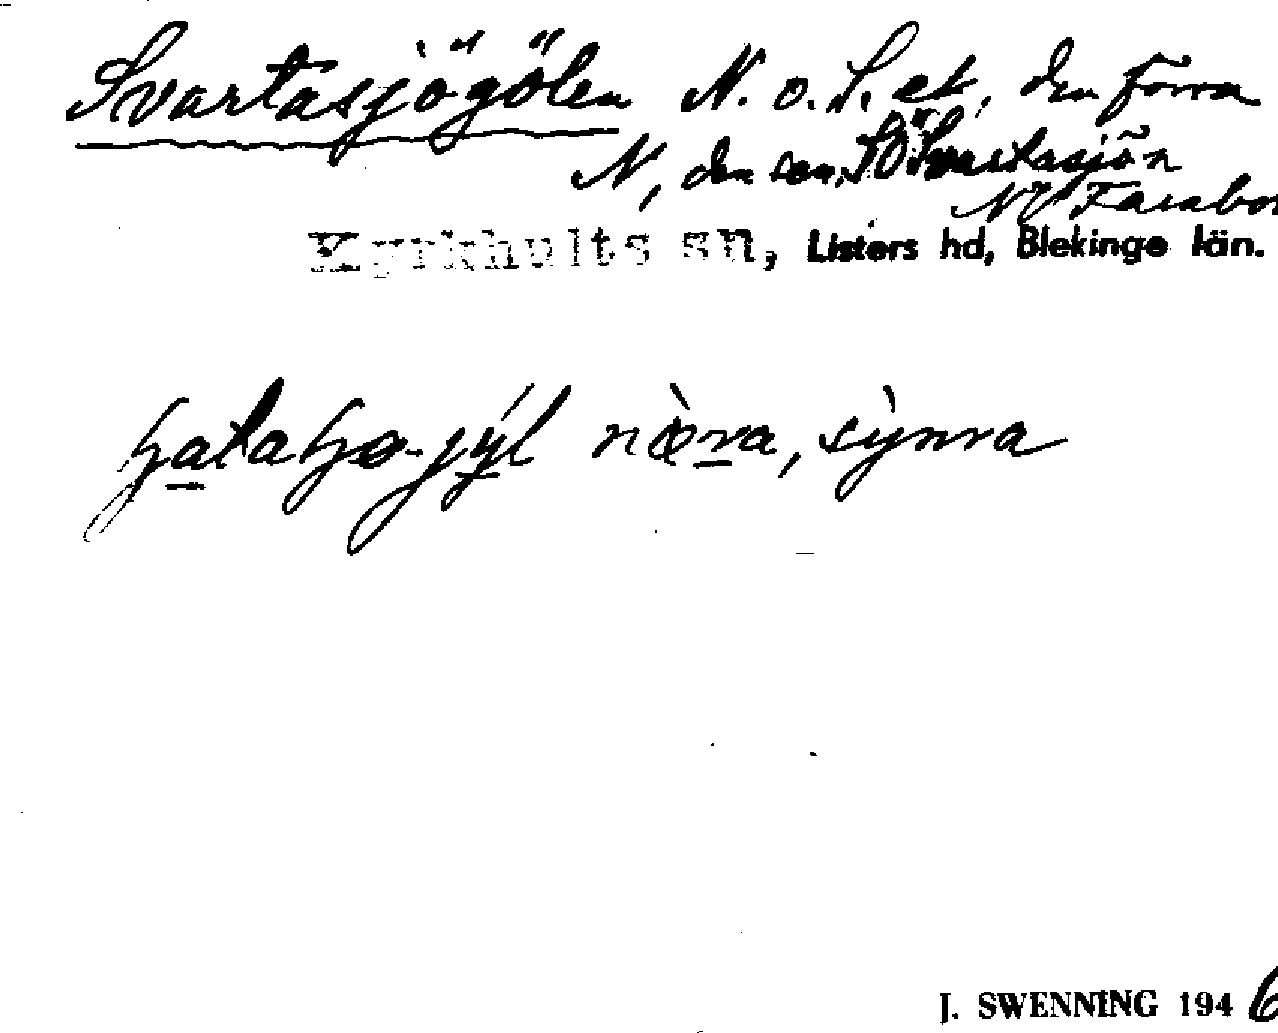 Svartasjögölen N. o. S. et, den förra
N, den sen. SÖ Svartasjön
NV Farabol
Kyrkhults sn, Listers hd, Blekinge län.
nœ̀ra, sỳnra
J. SWENNING 1946